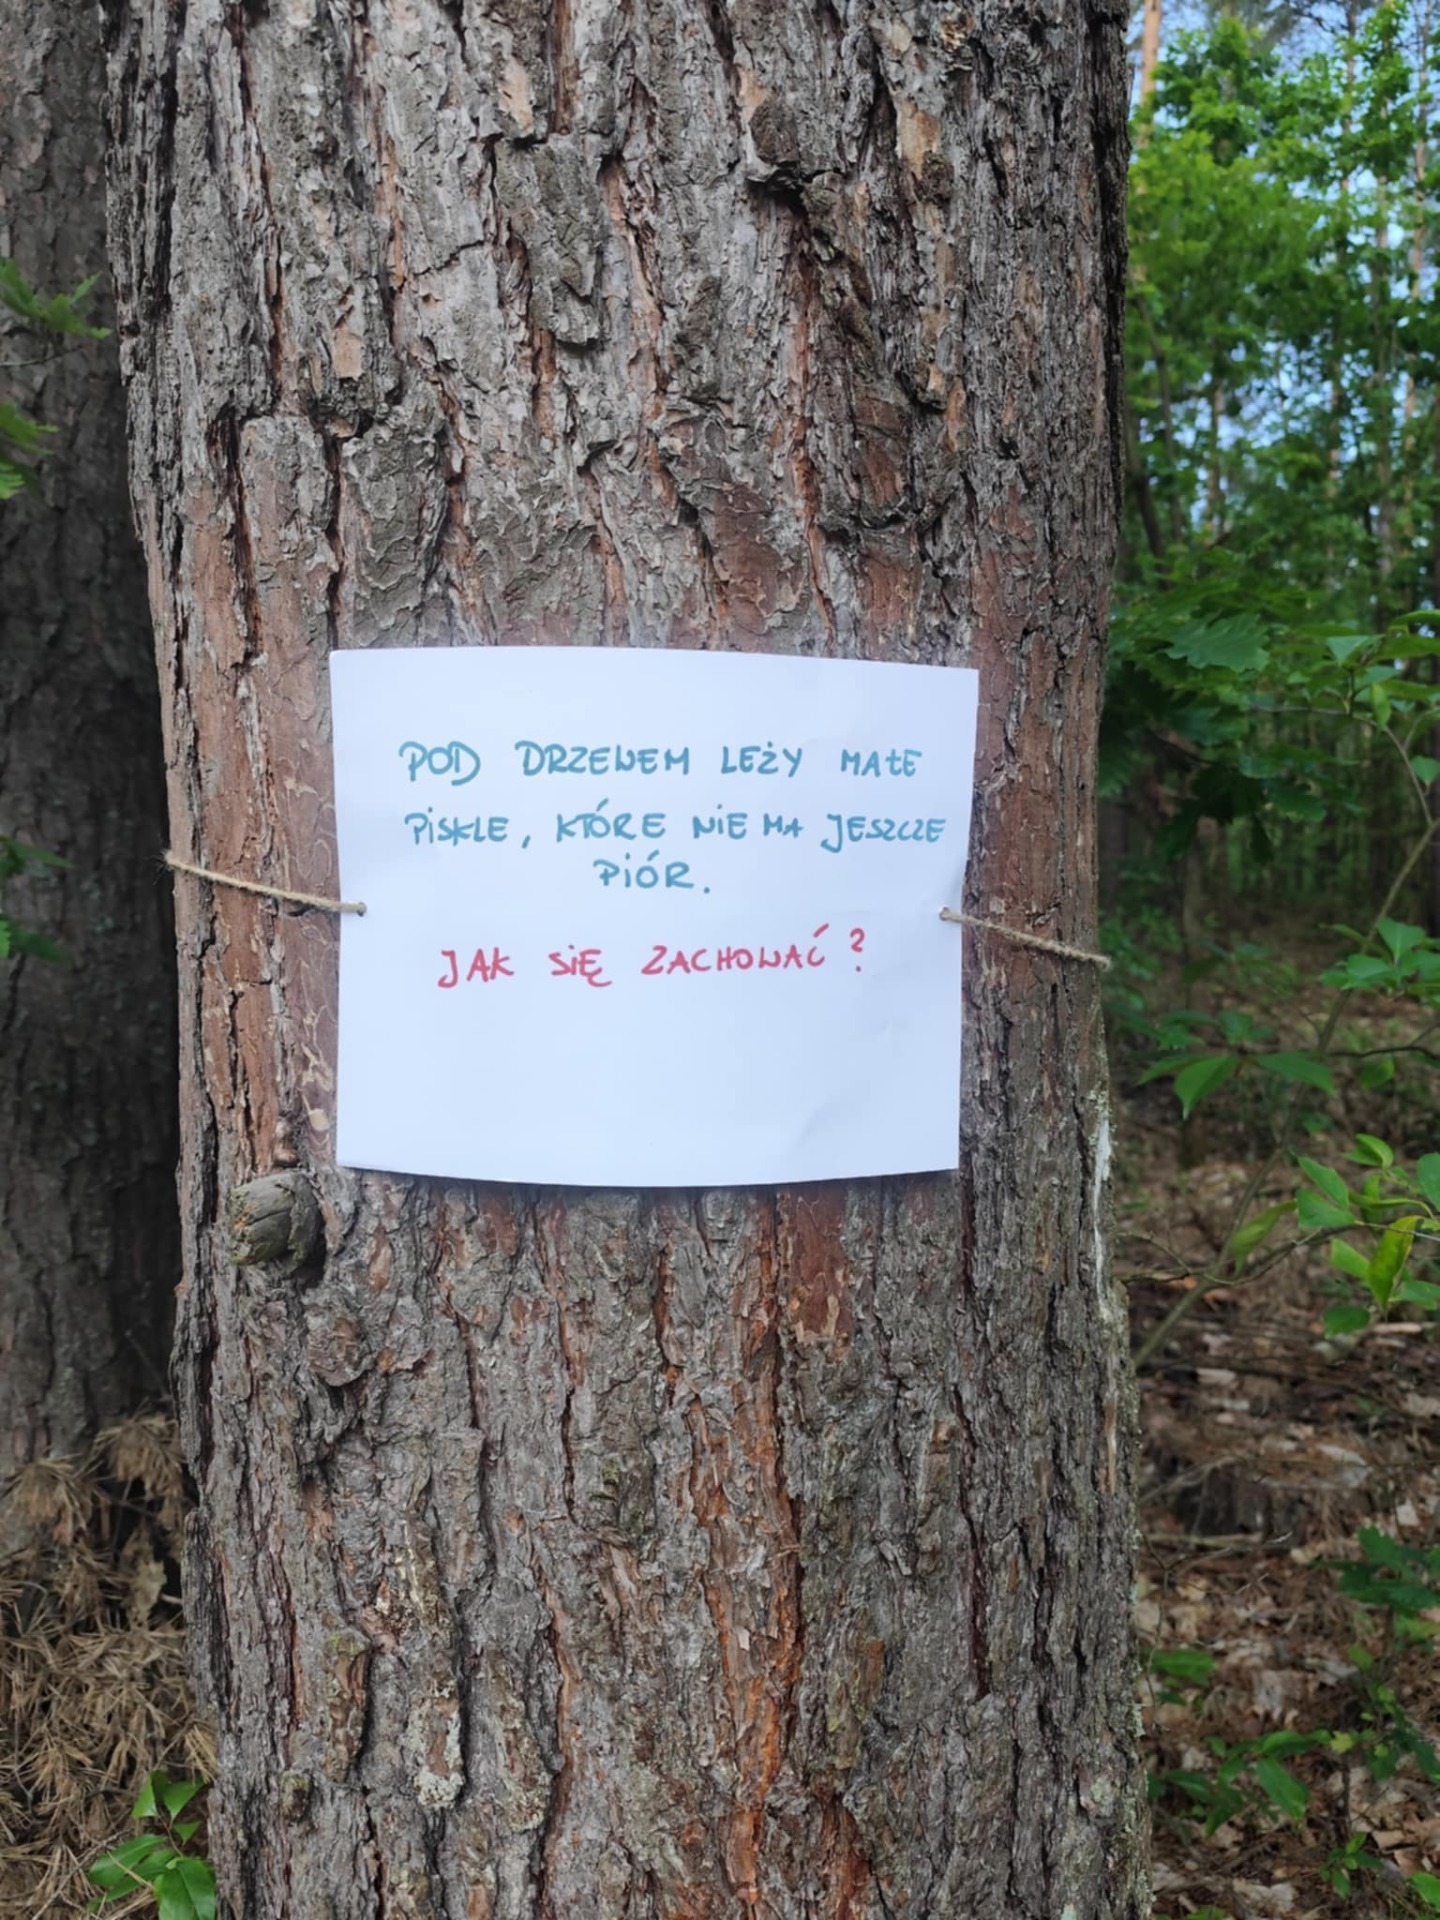 POD DRZEWEM LEŻY MAŁE
PISKLE, KTÓRE NIE MA JESZCZE
PIÓR.
JAK SIĘ ZACHOWAĆ?